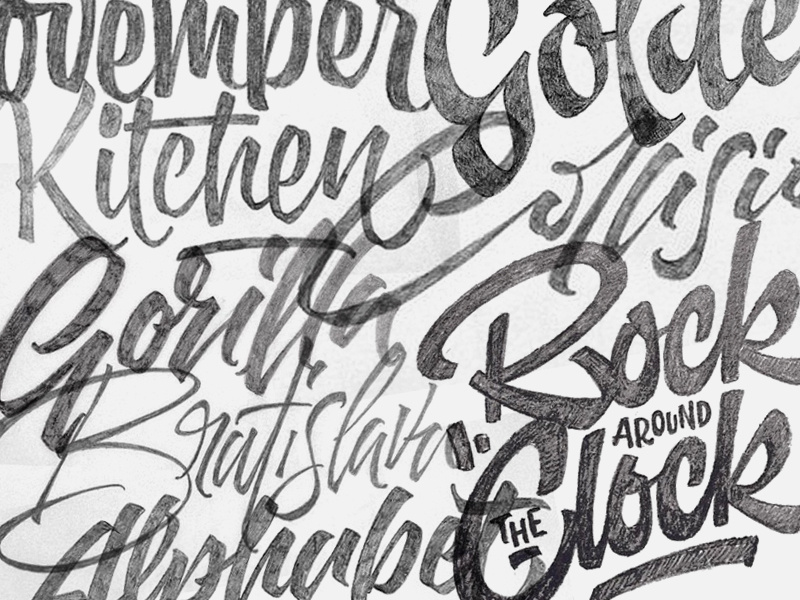 ovember
Golde
Kitchen
Missi
Gorilla
Rock
AROUND
THE
Clock
Bratislava
Alphabet